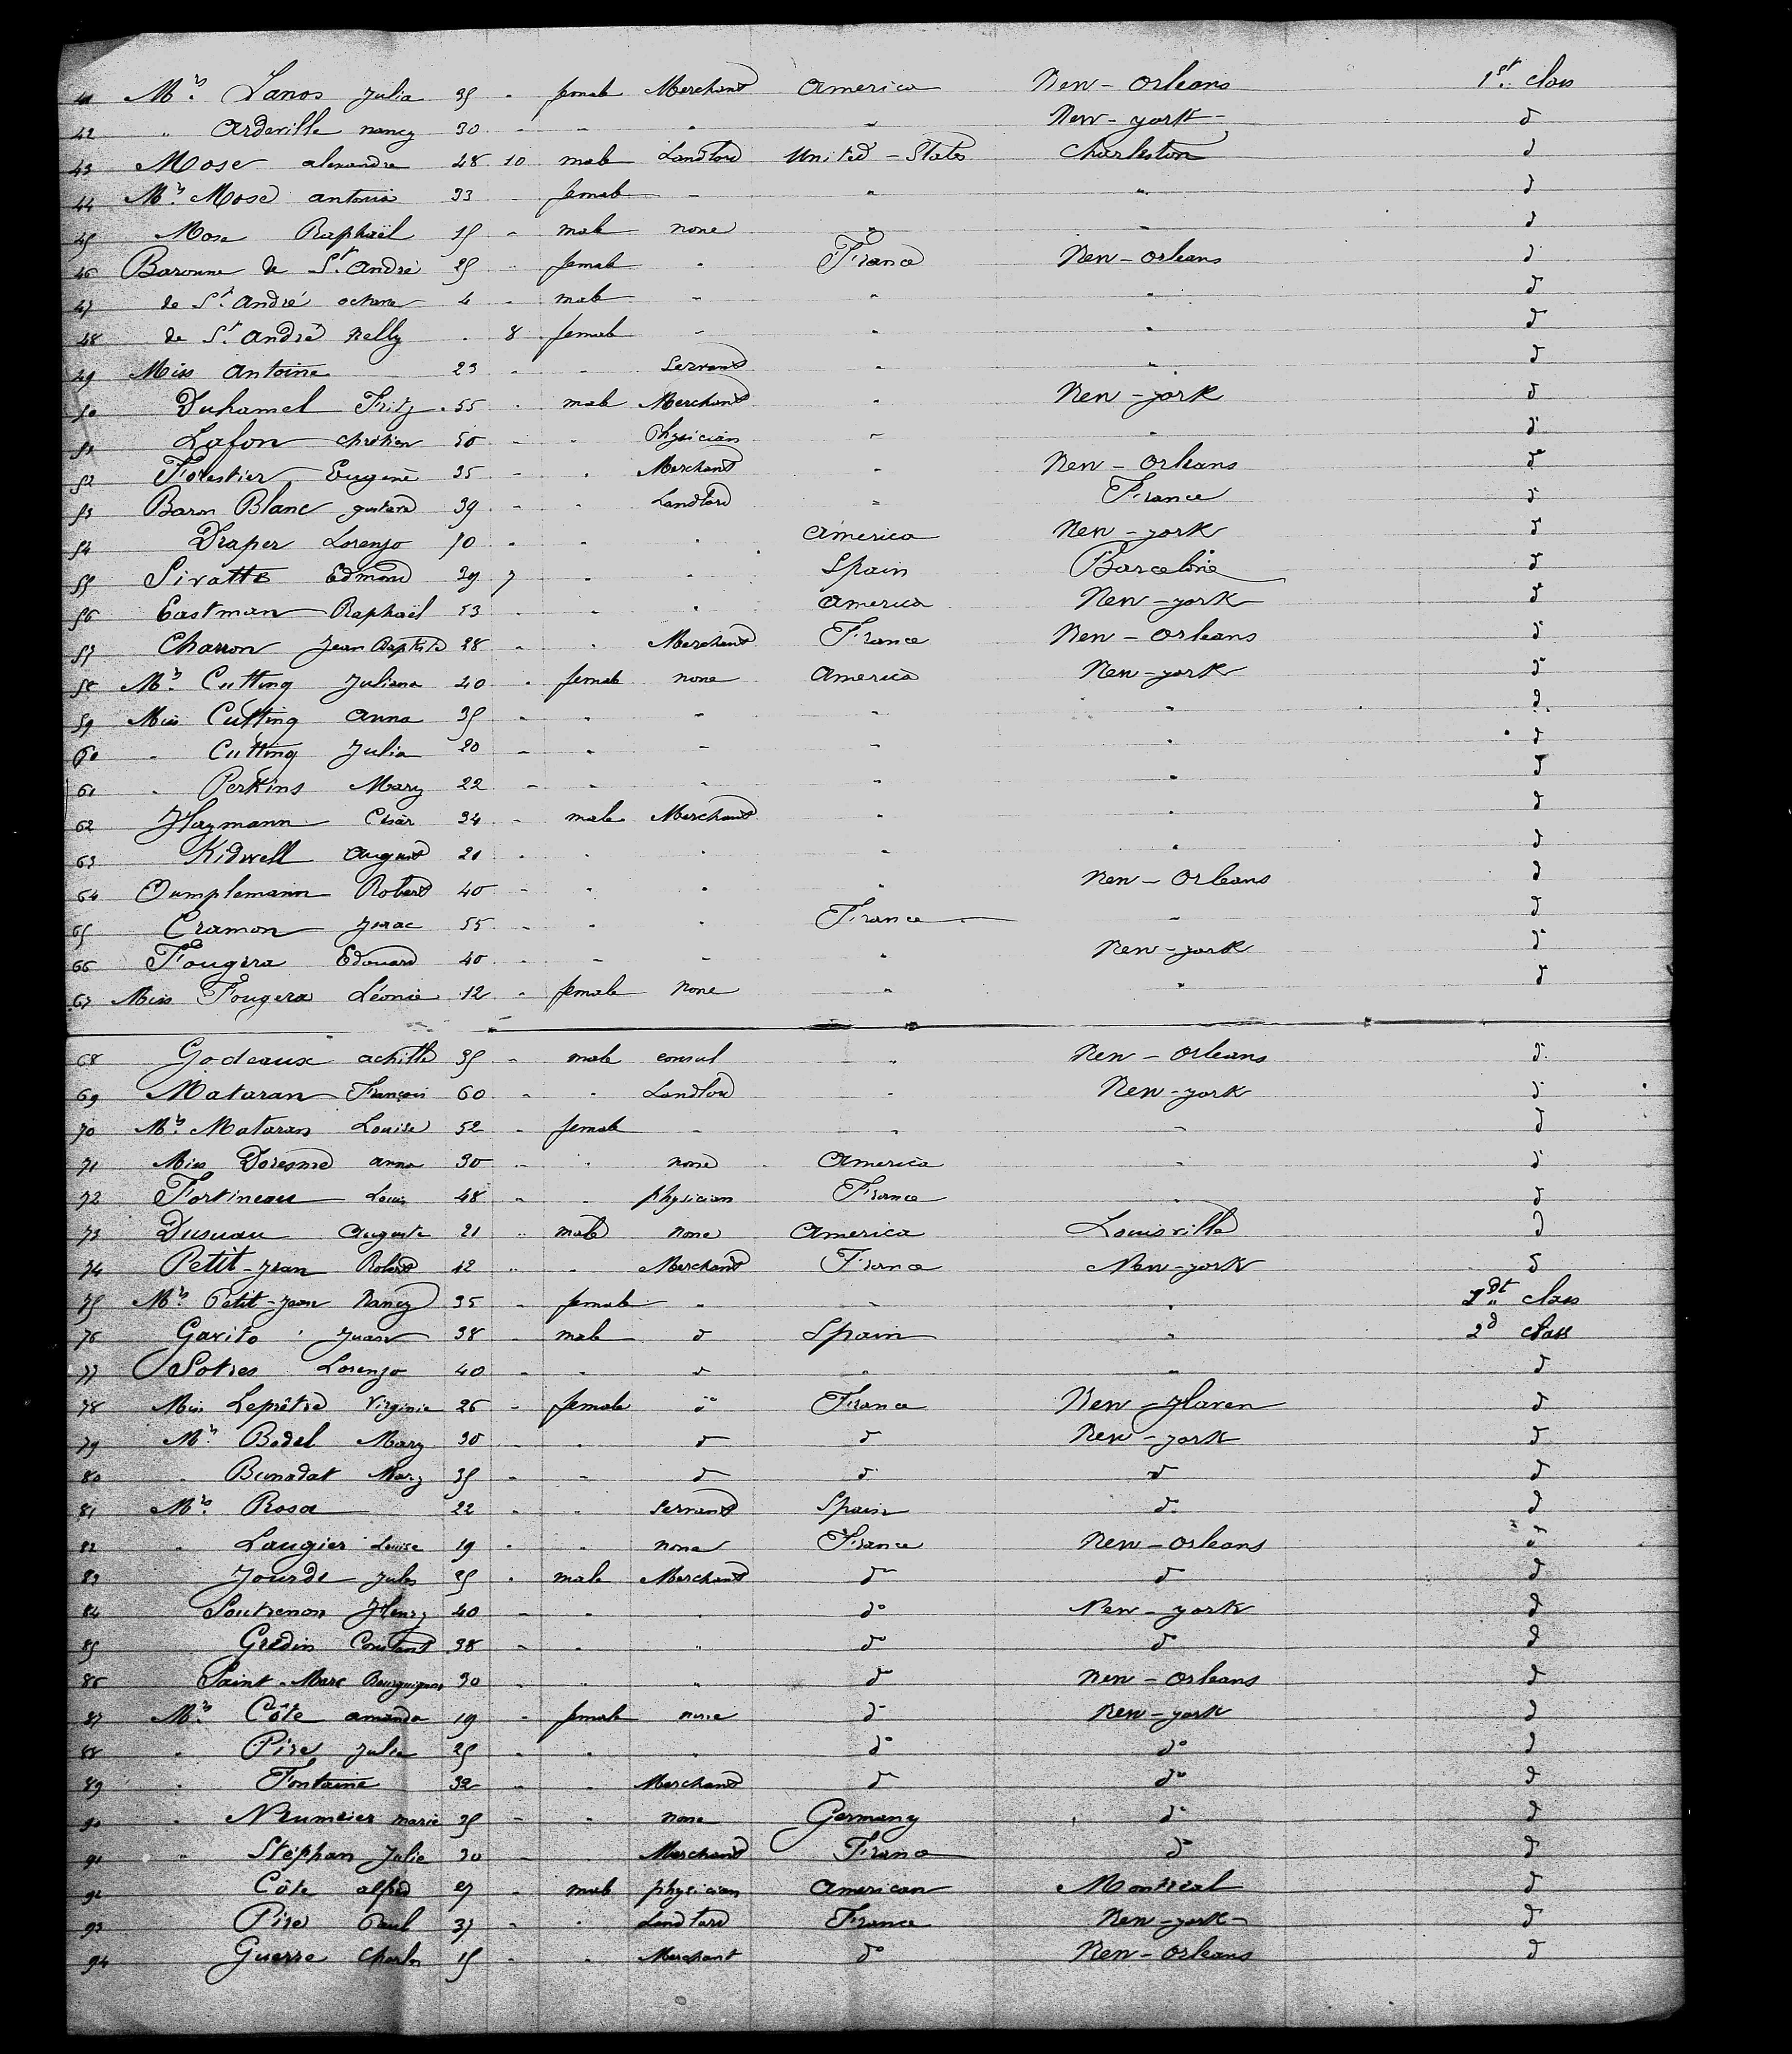 41 Mrs. Lanos Julia 35 - female Merchant America New-Orleans 1st. class
42 " Arderille nancy 30 - - " " New-york- d
43 Mose alexandre 48 10 male Landlord United-States Charleston d
44 Mrs. Mose antonia 33 - female - " " d
45 Mose Raphaël 15 - male none " - d
46 Baronne de St. André 25 - female " France New-Orleans d
47 de St. André 4 - male - " " d
48 de St. André Nelly . 8 female - " " d
49 Miss Antoine 23 - - Servant " " d
50 Duhamel Fritz 55 - male Merchant " New-york d
51 Lafon chrétien 50 - - Physician - " d
52 Forestier Eugène 35 - - Merchant - New-Orleans d
53 Baron Blanc gustave 39 - - Landlord " France d
54 Draper Lorenzo 70 - - " America New-york d
55 Siratte Edmond 39 7 - " Spain Barcelone d
56 Eastman Raphaël 53 - - " America New-york d
57 Charron Jean Baptiste 28 - - Merchant France New-Orleans d
58 Mrs. Cutting Juliana 40 - female none America New-york d
59 Miss Cutting Anna 35 - - - " " d
60 " Cutting Julia 20 - - - - " d
61 " Perkins Mary 22 - - - " " d
62 Haymann César 34 - male Merchant " " d
63 Kidwell August 21 - - " " " d
64 Robert 40 - - " " New-Orleans d
65 Cramon 55 - - " France - d
66 Fougera Edouard 40 - - - " New-york d
67 Miss Fougera Léonie 12 - female none " " d
68 Godeaux achille 35 - male consul " New-Orleans d
69 Mataran François 60 - - Landlord " New-york d
70 Mrs. Mataran Louise 52 - female - - - d
71 Miss anna 30 - - none America - d
72 Fortineau Louis 48 - - physician France " d
73 Dusuau Auguste 21 - male none America Louisville d
74 Petit-Jean Robert 42 - - Merchant France New-york d
75 Mrs. Petit-Jean Nancy 35 - female " - " class
76 Garito Juan 38 - male d Spain " 2d class
77 Sotres Lorenzo 40 - - d " " d
78 Miss Leprêtre Virginie 26 - female d France New-Haven d
79 Mrs. Bedel Mary 30 - - d d New-york d
80 " Bunadat Mary 35 - - d d d d
81 Mrs. Rosa 22 - - Servant Spain do d
82 " Laugier Louise 19 - - none France New-Orleans d
83 Jourde Jules 25 - male Merchant do d d
84 Soutrenon Henry 40 - - - do New-york d
85 Gredin Constant 38 - - " do do d
86 Saint-Marc Bourguignon 30 - - " do New-Orleans d
87 Mrs. Côte amanda 19 - female none d New-york d
88 " Pire Julie 25 - - " do do d
89 " Fontaine 32 - - Merchand d do d
90 " Neumeier marie 35 - - none Germany do d
91 " Stéphan Julie 30 - - Merchand France do d
92 Côte alfred 27 - male physician American Montréal d
93 Pire Paul 37 - - Landlord France New-york- d
94 Guerre Charles 15 - - Merchant do New-Orleans d